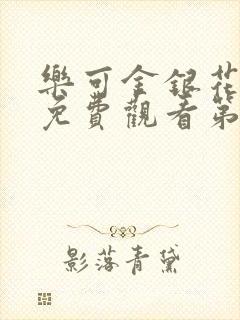 樂可金銀花
免費觀看第
影落青黛